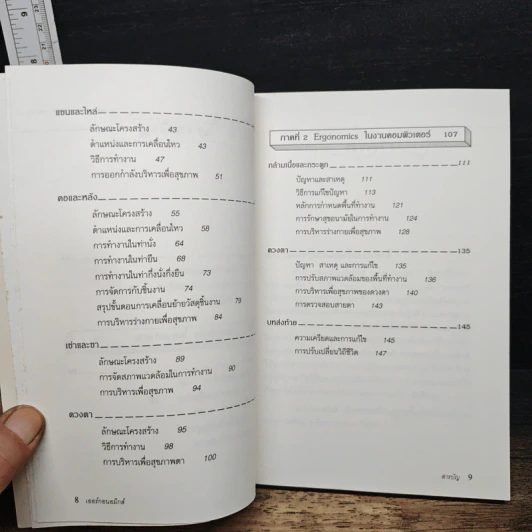 แขนและไหล่
ลักษณะโครงสร้าง 43
ตำแหน่งและการเคลื่อนไหว 43
วิธีการทำงาน 47
การออกกำลังบริหารเพื่อสุขภาพ 51
คอและหลัง
ลักษณะโครงสร้าง 55
ตำแหน่งและการเคลื่อนไหว 58
การทำงานในท่านั่ง 64
การทำงานในท่ายืน 68
การทำงานในท่ากึ่งนั่งกึ่งยืน 73
การจัดการกับชิ้นงาน 74
สรุปขั้นตอนการเคลื่อนย้ายวัสดุชิ้นงาน 79
การบริหารร่างกายเพื่อสุขภาพ 84
เข่าและขา
ลักษณะโครงสร้าง 89
การจัดสภาพแวดล้อมในการทำงาน 90
การบริหารเพื่อสุขภาพ 94
ดวงตา
ลักษณะโครงสร้าง 95
วิธีการทำงาน 98
การบริหารเพื่อสุขภาพตา 100
8 เออร์กอนอมิกส์
ภาคที่ 2 Ergonomics ในงานคอมพิวเตอร์ 107
กล้ามเนื้อและกระดูก 111
ปัญหาและสาเหตุ 111
วิธีการแก้ไขปัญหา 113
หลักการกำหนดพื้นที่ทำงาน 121
การรักษาสุขอนามัยในการทำงาน 124
การบริหารร่างกายเพื่อสุขภาพ 128
ดวงตา 135
ปัญหา สาเหตุ และการแก้ไข 135
การปรับสภาพแวดล้อมของพื้นที่ทำงาน 136
การบริหารเพื่อสุขภาพของดวงตา 140
การตรวจสอบสายตา 143
บทส่งท้าย 145
ความเครียดและการแก้ไข 145
การปรับเปลี่ยนวิถีชีวิต 147
สารบัญ 9